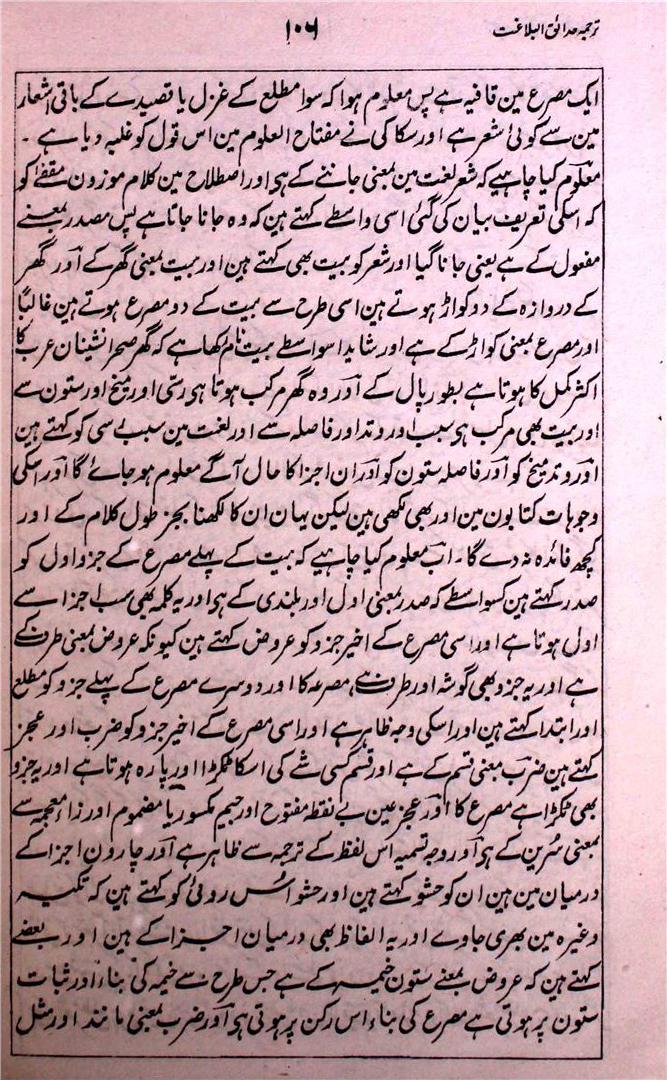 ترجمہ حدائق البلاغت
۱۰۶
ایک مصرع مین قافیہ ہے پس معلوم ہوا کہ سوا مطلع کے غزل یا قصیدے کے باقی اشعار
مین سے کوئی شعر ہے اور سکاکی نے مفتاح العلوم مین اس قول کو غلبہ دیا ہے ۔
معلوم کیا چاہیے کہ شعر لغت مین بمعنی جاننے کے ہی اور اصطلاح مین کلام موزون مقفے کو
کہ اسکی تعریف بیان کی گئی اسی واسطے کہتے ہین کہ وہ جانا جاتا ہے پس مصدر بمعنے
مفعول کے ہے یعنی جانا گیا اور شعر کو بیت بھی کہتے ہین اور بیت بمعنی گھر کے اور گھر
کے دروازہ کے دو کواڑ ہوتے ہین اسی طرح سے بیت کے دو مصرع ہوتے ہین غالبًا
اور مصرع بمعنی کواڑ کے ہے اور شاید اسواسطے بیت نام رکھا ہے کہ گھر صحرا نشینان عرب کا
اکثر کمل کا ہوتا ہے بطور پال کے اور وہ گھر مرکب ہوتا ہی رسّی اور میخ اور ستون سے
اور بیت بھی مرکب ہی سبب اور وتد اور فاصلہ سے اور لغت مین سبب رسی کو کہتے ہین
اور وتد میخ کو اور فاصلہ ستون کو اور ان اجزا کا حال آگے معلوم ہو جائے گا اور اسکی
وجوہات کتابون مین اور بھی لکھی ہین لیکن یہان ان کا لکھنا بجز طول کلام کے اور
کچھ فائدہ نہ دے گا۔ اب معلوم کیا چاہیے کہ بیت کے پہلے مصرع کے جزو اول کو
صدر کہتے ہین کسواسطے کہ صدر بمعنی اول اور بلندی کے ہی اور یہ کلمہ بھی سب اجزا سے
اول ہوتا ہے اور اسی مصرع کے اخیر جزو کو عروض کہتے ہین کیونکہ عروض بمعنی طرف کے
ہے اور یہ جزو بھی گوشہ اور طرف ہے مصرعہ کا اور دوسرے مصرع کے پہلے جزو کو مطلع
اور ابتدا کہتے ہین اور اسکی وجہ ظاہر ہے اور اسی مصرع کے اخیر جزو کو ضرب اور عجز
کہتے ہین ضرب بمعنی قسم کے ہے اور قسم کسی شے کی اسکا ٹکڑا اور پارہ ہوتا ہے اور یہ جزو
بھی ٹکڑا ہے مصرع کا اور عجز عین بے نقط مفتوح اور جیم مکسور یا مضموم اور زاء معجمہ سے
بمعنی سُرین کے ہی اور وجہ تسمیہ اس لفظ کے ترجمہ سے ظاہر ہے اور چارون اجزا کے
درمیان مین ہین ان کو حشو کہتے ہین اور حشو اُس روئی کو کہتے ہین کہ تکیہ
وغیرہ مین بھری جاوے اور یہ الفاظ بھی درمیان اجزا کے ہین اور بعضے
کہتے ہین کہ عروض بمعنے ستون خیمہ کے ہے جس طرح سے خیمہ کی بناء اور ثبات
ستون پر ہوتی ہے مصرع کی بناء اس رکن پر ہوتی ہی اور ضرب بمعنی مانند اور مثل